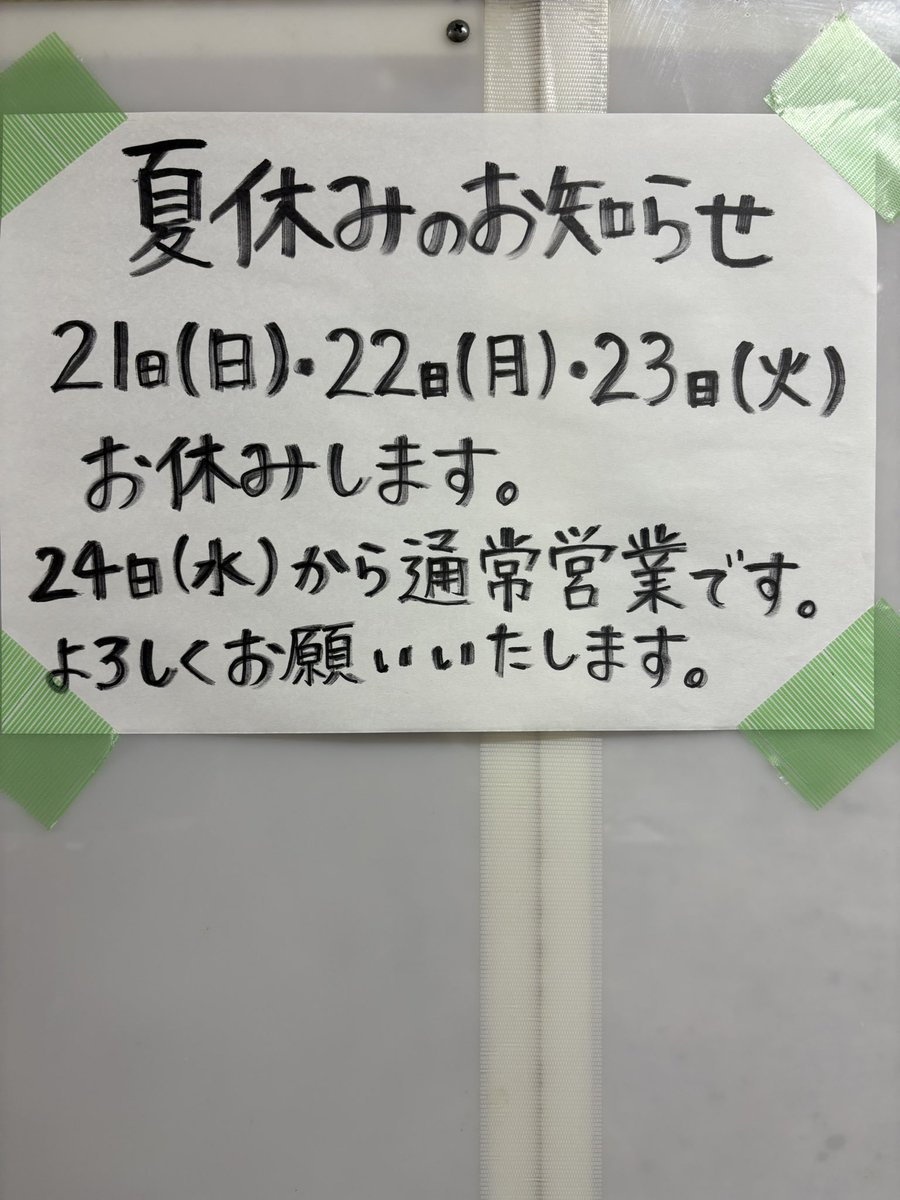 夏休みのお知らせ
21日(日)・22日(月)・23日(火)
お休みします。
24日(水)から通常営業です。
よろしくお願いいたします。